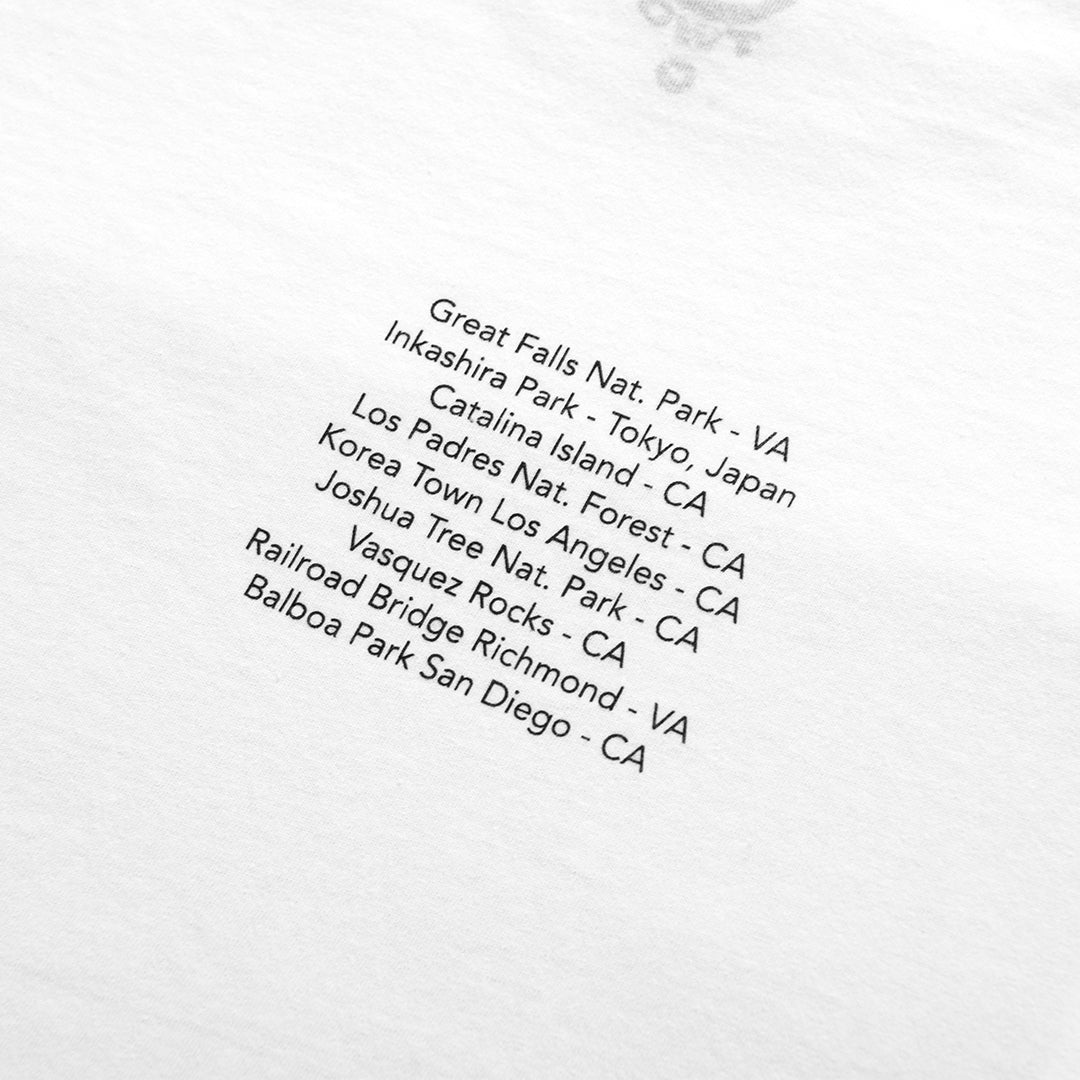 Great Falls Nat. Park - VA
Inkashira Park - Tokyo, Japan
Catalina Island - CA
Los Padres Nat. Forest - CA
Korea Town Los Angeles - CA
Joshua Tree Nat. Park - CA
Vasquez Rocks - CA
Railroad Bridge Richmond - VA
Balboa Park San Diego - CA